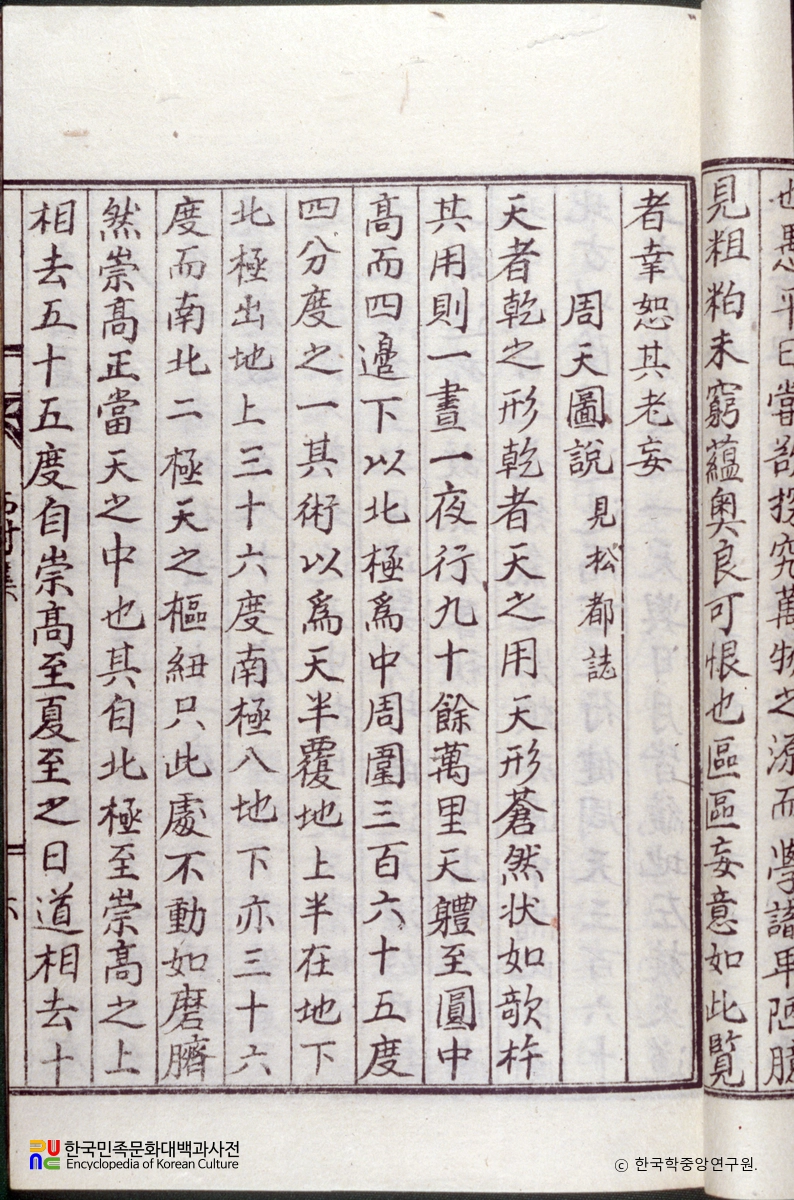 也愚平日嘗欲探究萬物之源而學識卑陋臆
見粗粕未窮蘊奧良可恨也區區妄意如此覽
者幸恕其老妄
周天圖說 見松都誌
天者乾之形乾者天之用天形蒼然状如欹杵
其用則一晝一夜行九十餘萬里天軆至圓中
髙而四邉下以北極爲中周圍三百六十五度
四分度之一其術以爲天半覆地上半在地下
北極出地上三十六度南極入地下亦三十六
度而南北二極天之樞紐只此處不動如磨臍
然崇髙正當天之中也其自北極至崇髙之上
相去五十五度自崇髙至夏至之日道相去十
한국민족문화대백과사전
Encyclopedia of Korean Culture
ⓒ 한국학중앙연구원.